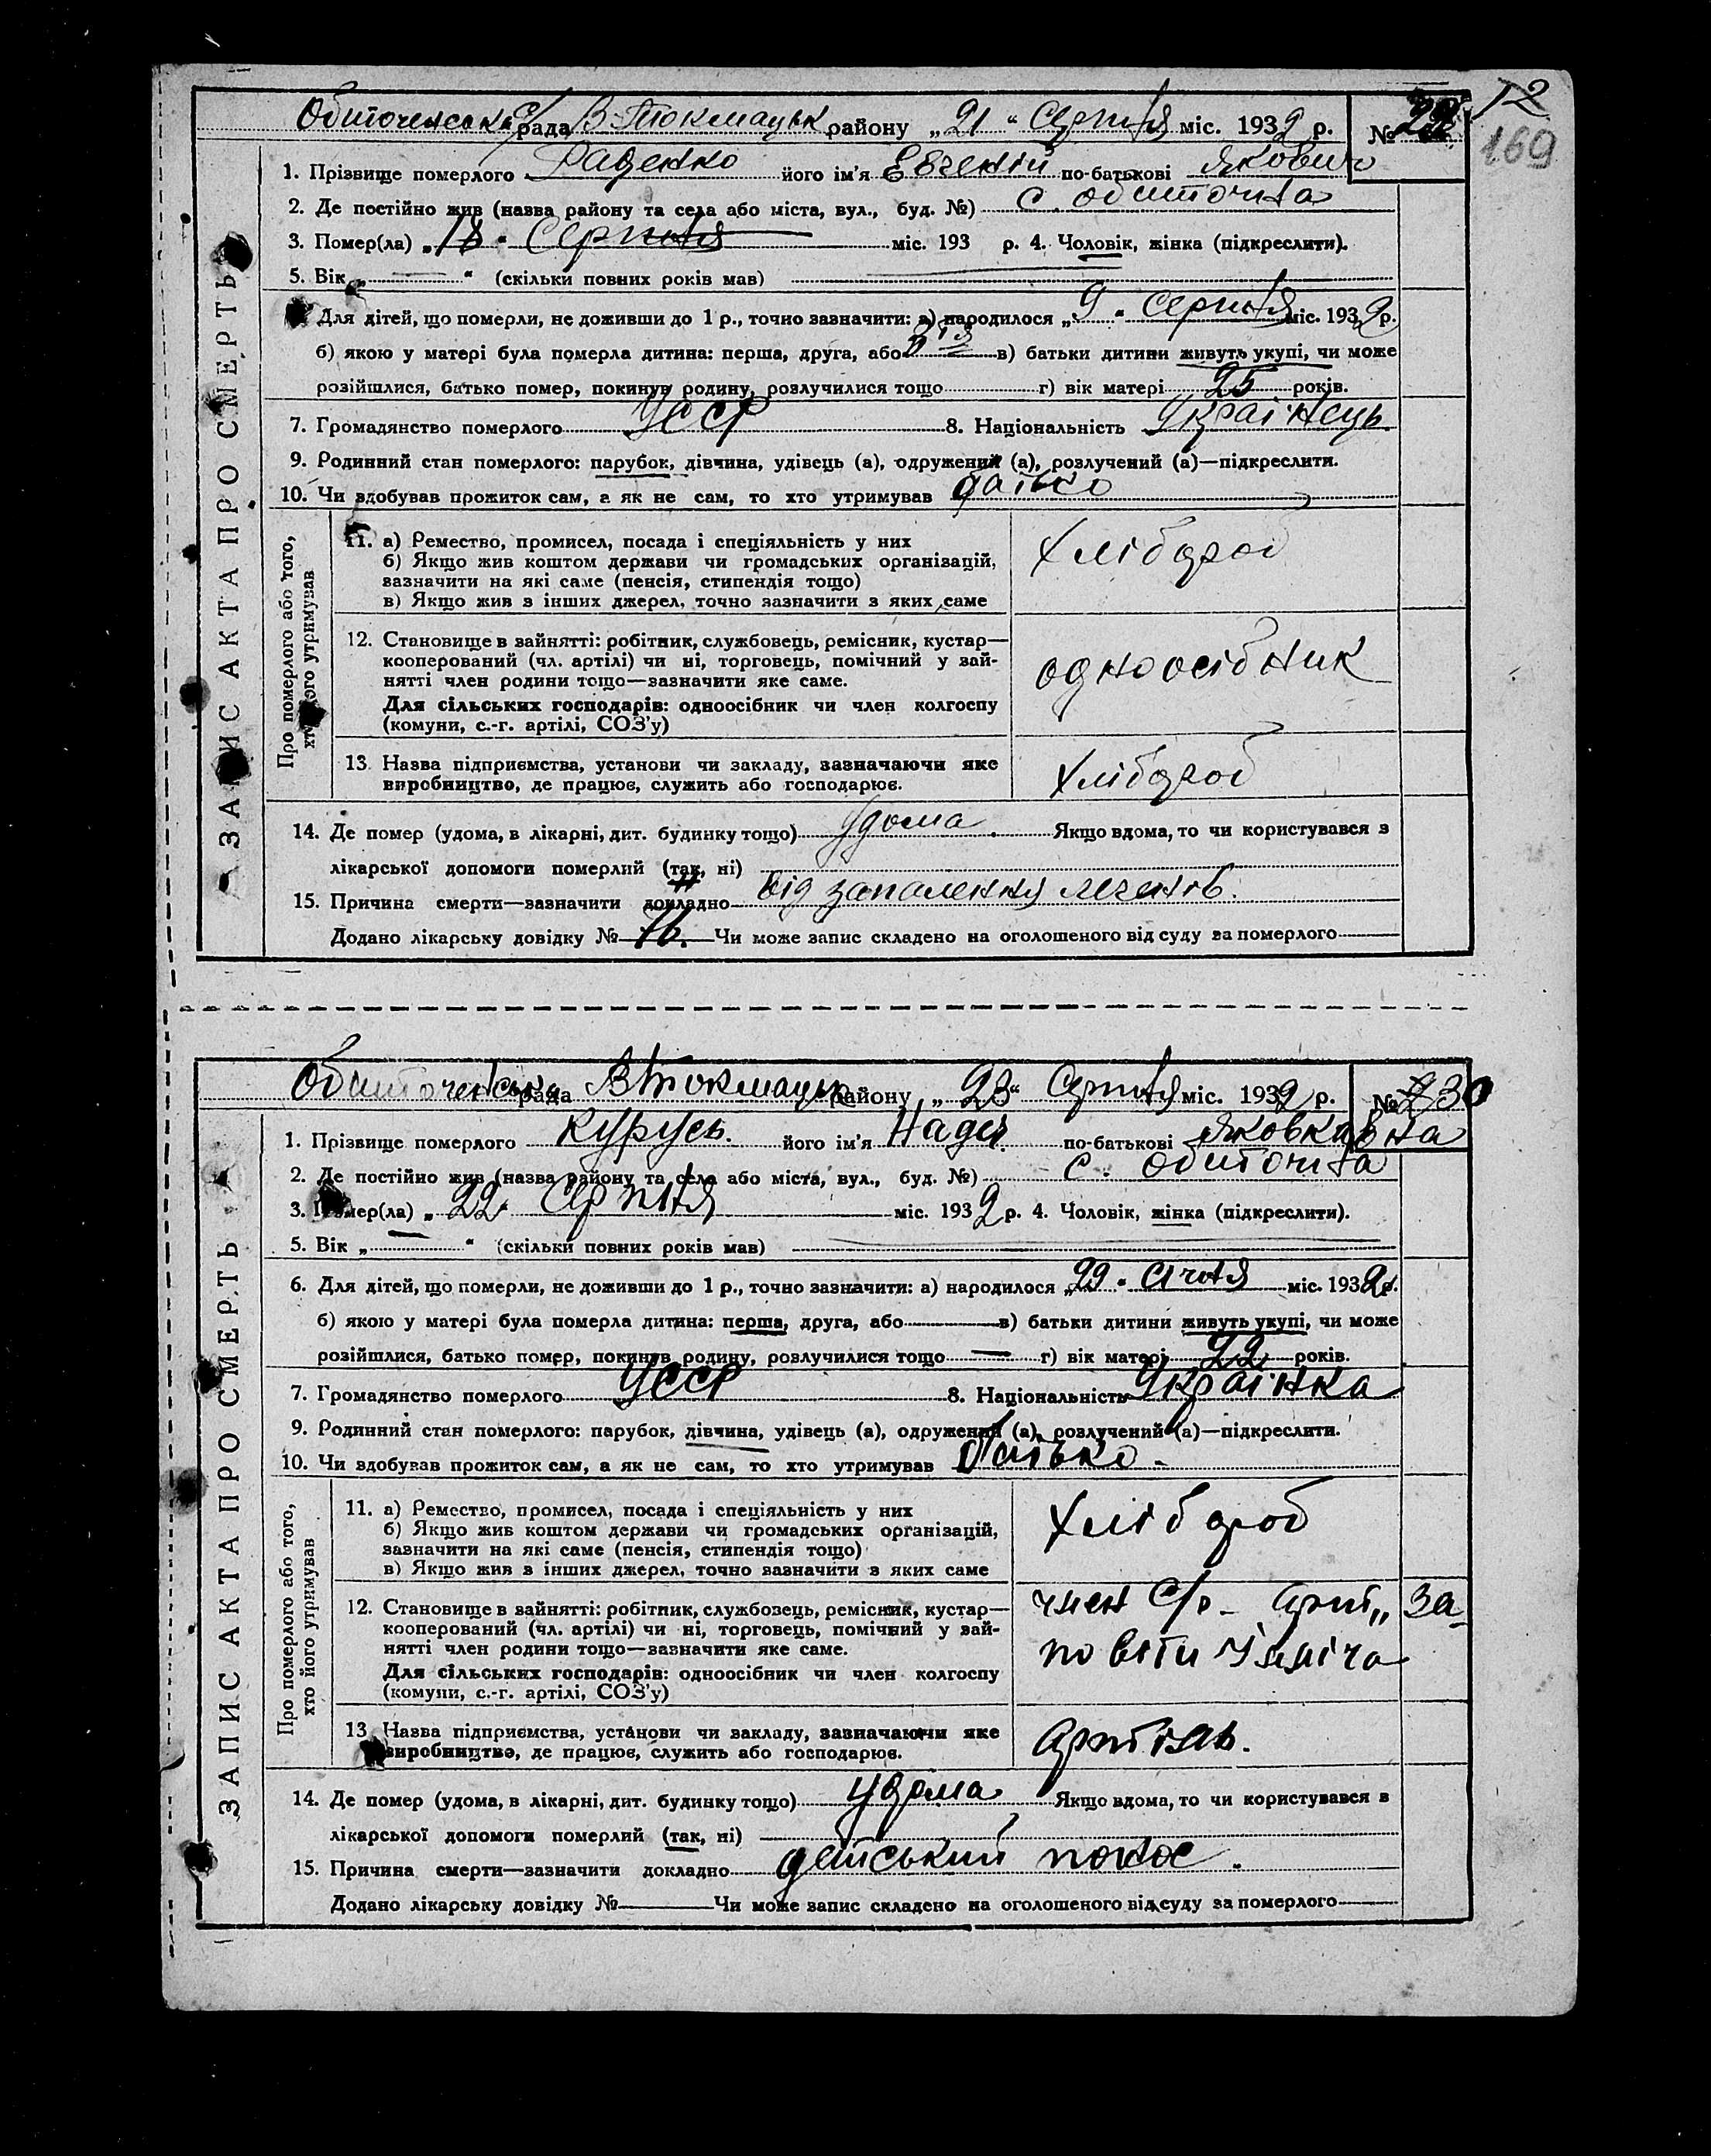 12
169
Обиточенська с/рада В-Токмацьк району „21" Серпня міс. 1932 р. № 29
1. Прізвище померлого Раденко його ім'я Евгеній по-батькові Якович
2. Де постійно жив (назва району та села або міста, вул., буд. №) с. обиточна
3. Помер(ла) „18" Серпня міс. 193 р. 4. Чоловік, жінка (підкреслити).
5. Вік „ " (скільки повних років мав)
Для дітей, що померли, не доживши до 1 р., точно зазначити: а) народилося „9" Серпня міс. 1932 р.
б) якою у матері була померла дитина: перша, друга, або в) батьки дитини живуть укупі, чи може
розійшлися, батько помер, покинув родину, розлучилися тощо г) вік матері 25 років.
7. Громадянство померлого УССР 8. Національність Українець
9. Родинний стан померлого: парубок, дівчина, удівець (а), одружений (а), розлучений (а)—підкреслити.
10. Чи здобував прожиток сам, а як не сам, то хто утримував батько
ЗАПИС АКТА ПРО СМЕРТЬ
Про померлого або того,
хто його утримував
11. а) Ремество, промисел, посада і спеціяльність у них
б) Якщо жив коштом держави чи громадських організацій,
зазначити на які саме (пенсія, стипендія тощо)
в) Якщо жив з інших джерел, точно зазначити з яких саме
хлібороб
12. Становище в зайнятті: робітник, службовець, ремісник, кустар—
кооперований (чл. артілі) чи ні, торговець, помічний у зай-
нятті член родини тощо—зазначити яке саме.
Для сільських господарів: одноосібник чи член колгоспу
(комуни, с.-г. артілі, СОЗ'у)
одноосібник
13. Назва підприємства, установи чи закладу, зазначаючи яке
виробництво, де працює, служить або господарює.
хлібороб
14. Де помер (удома, в лікарні, дит. будинку тощо) удома. Якщо вдома, то чи користувався з
лікарської допомоги померлий (так, ні)
15. Причина смерти—зазначити докладно від запалення легенів.
Додано лікарську довідку № 76. Чи може запис складено на оголошеного від суду за померлого
Обиточенська рада ВТокмацьк району „23" Серпня міс. 1932 р. № 30
1. Прізвище померлого Курусь. його ім'я Надія по-батькові Яковкавна
2. Де постійно жив (назва району та села або міста, вул., буд. №) с. обиточна
3. Помер(ла) „22" Серпня міс. 1932 р. 4. Чоловік, жінка (підкреслити).
5. Вік „ " (скільки повних років мав)
6. Для дітей, що померли, не доживши до 1 р., точно зазначити: а) народилося „29" Січня міс. 1932 р.
б) якою у матері була померла дитина: перша, друга, або в) батьки дитини живуть укупі, чи може
розійшлися, батько помер, покинув родину, розлучилися тощо г) вік матері 22 років.
7. Громадянство померлого УССР 8. Національність Українка
9. Родинний стан померлого: парубок, дівчина, удівець (а), одружений (а), розлучений (а)—підкреслити.
10. Чи здобував прожиток сам, а як не сам, то хто утримував батько.
ЗАПИС АКТА ПРО СМЕРТЬ
Про померлого або того,
хто його утримував
11. а) Ремество, промисел, посада і спеціяльність у них
б) Якщо жив коштом держави чи громадських організацій,
зазначити на які саме (пенсія, стипендія тощо)
в) Якщо жив з інших джерел, точно зазначити з яких саме
хлібороб
12. Становище в зайнятті: робітник, службовець, ремісник, кустар—
кооперований (чл. артілі) чи ні, торговець, помічний у зай-
нятті член родини тощо—зазначити яке саме.
Для сільських господарів: одноосібник чи член колгоспу
(комуни, с.-г. артілі, СОЗ'у)
член С/г- арт „ За
повіти Ілліча
13. Назва підприємства, установи чи закладу, зазначаючи яке
виробництво, де працює, служить або господарює.
артіль.
14. Де помер (удома, в лікарні, дит. будинку тощо) удома Якщо вдома, то чи користувався з
лікарської допомоги померлий (так, ні)
15. Причина смерти—зазначити докладно детський понос.
Додано лікарську довідку № Чи може запис складено на оголошеного від суду за померлого